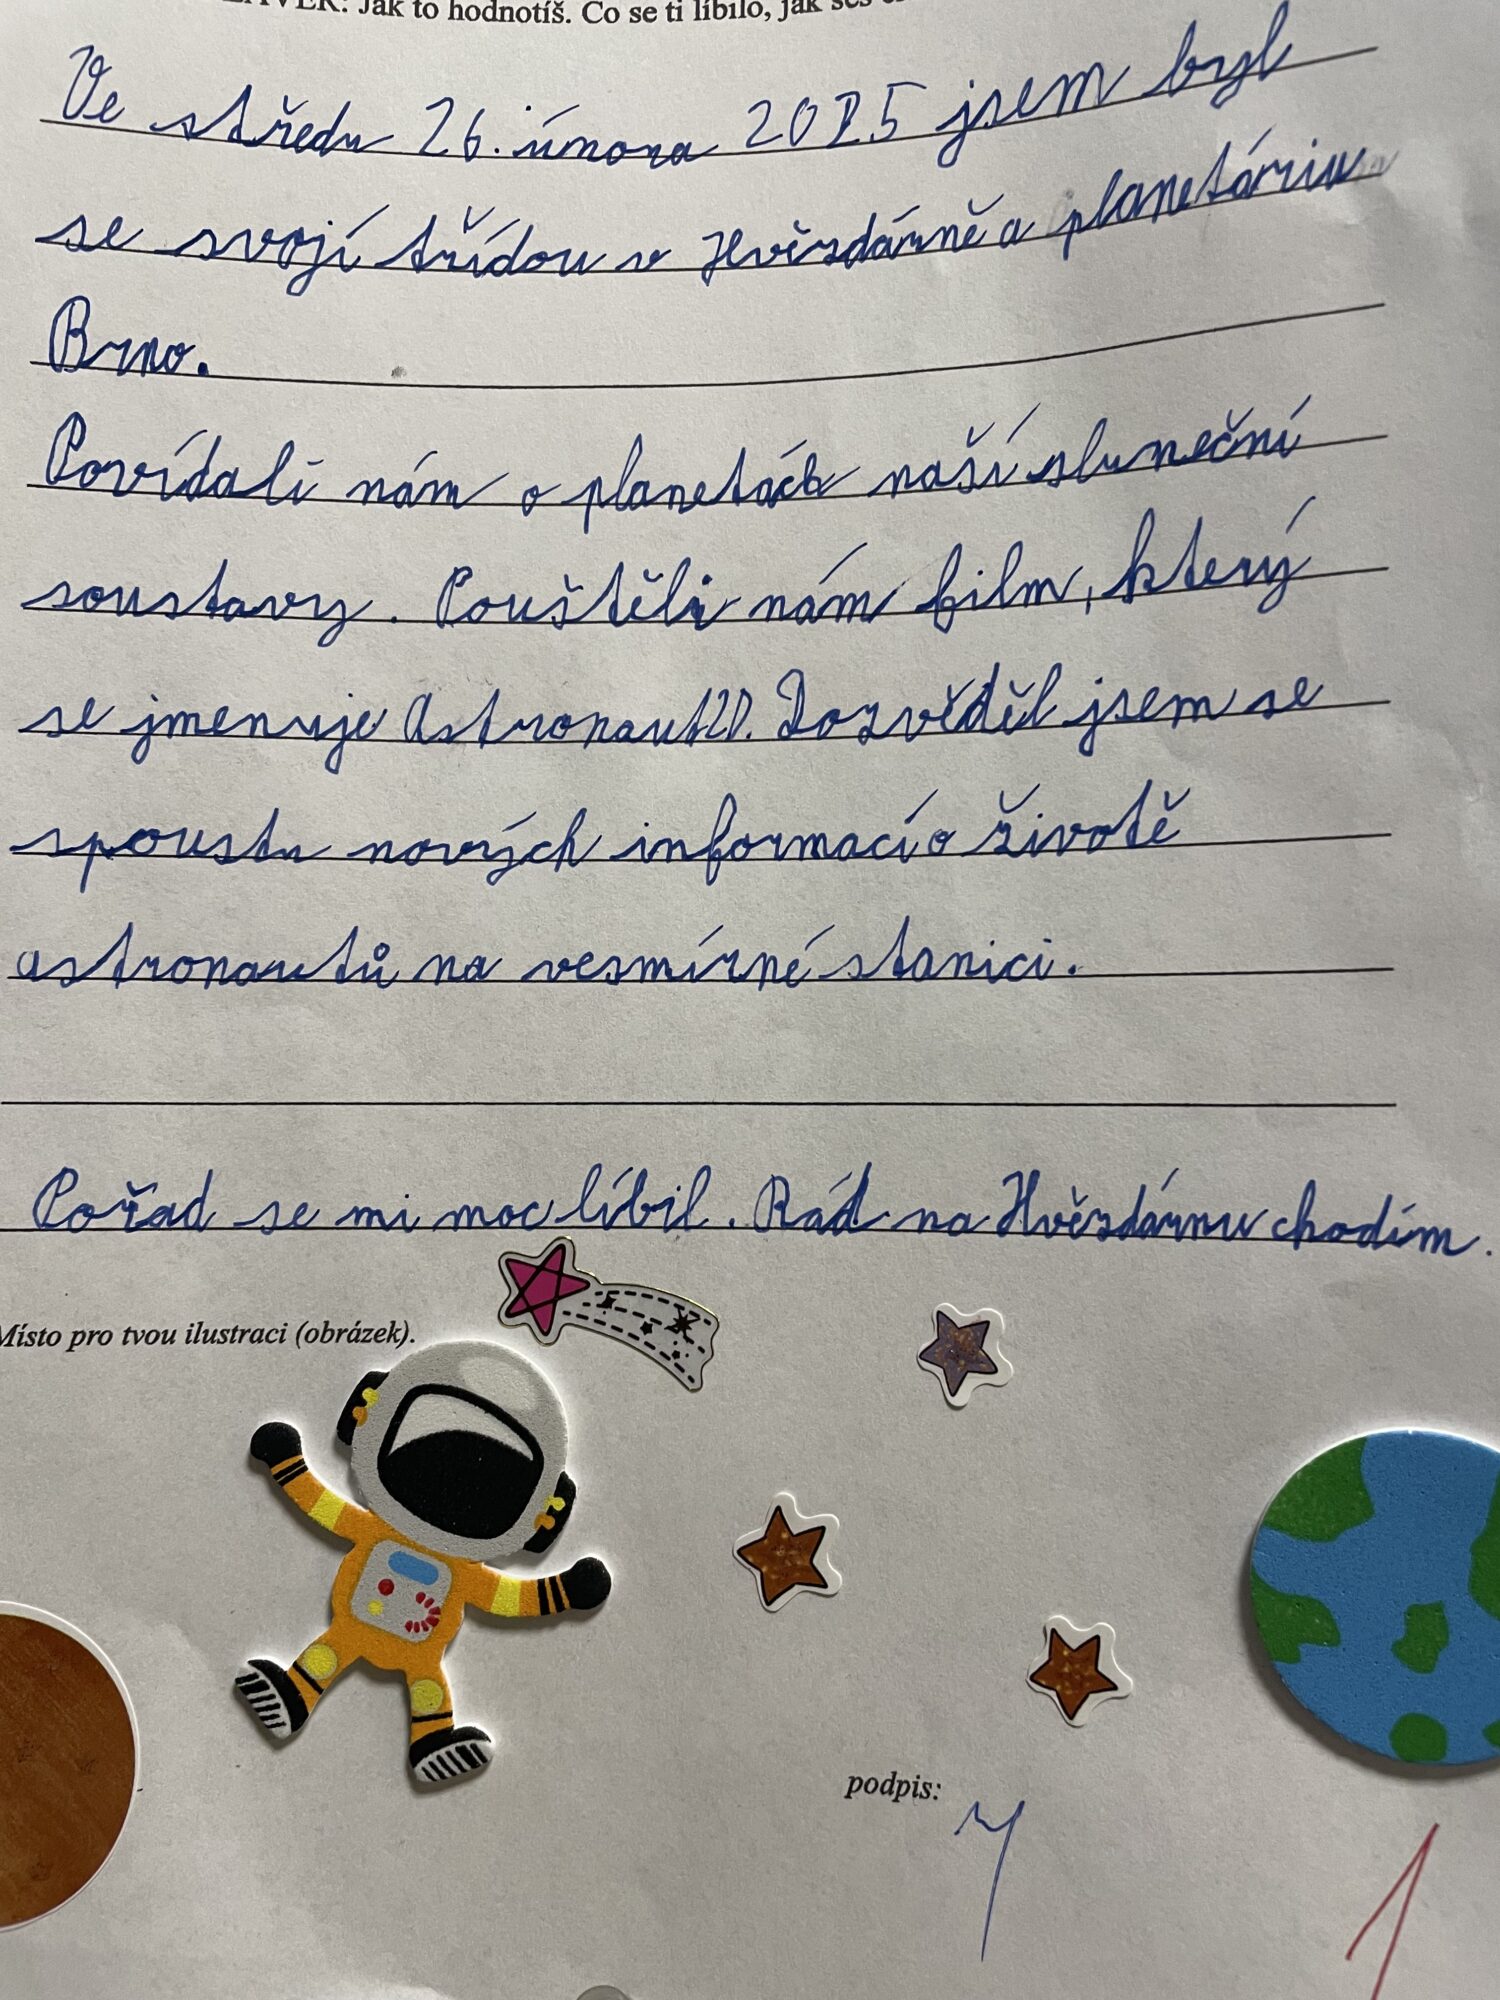 ÁVĚR: Jak to hodnotíš. Co se ti líbilo, jak ses
Ve středu 26. února 2025 jsem byl
se svojí třídou v Hvězdárně a planetáriu
Brno.
Povídali nám o planetách naší sluneční
soustavy. Pouštěli nám film, který
se jmenuje Astronaut2D. Dozvěděl jsem se
spoustu nových informací o životě
astronautů na vesmírné stanici.
Pořad se mi moc líbil. Rád na Hvězdárnu chodím.
Místo pro tvou ilustraci (obrázek).
podpis:
1